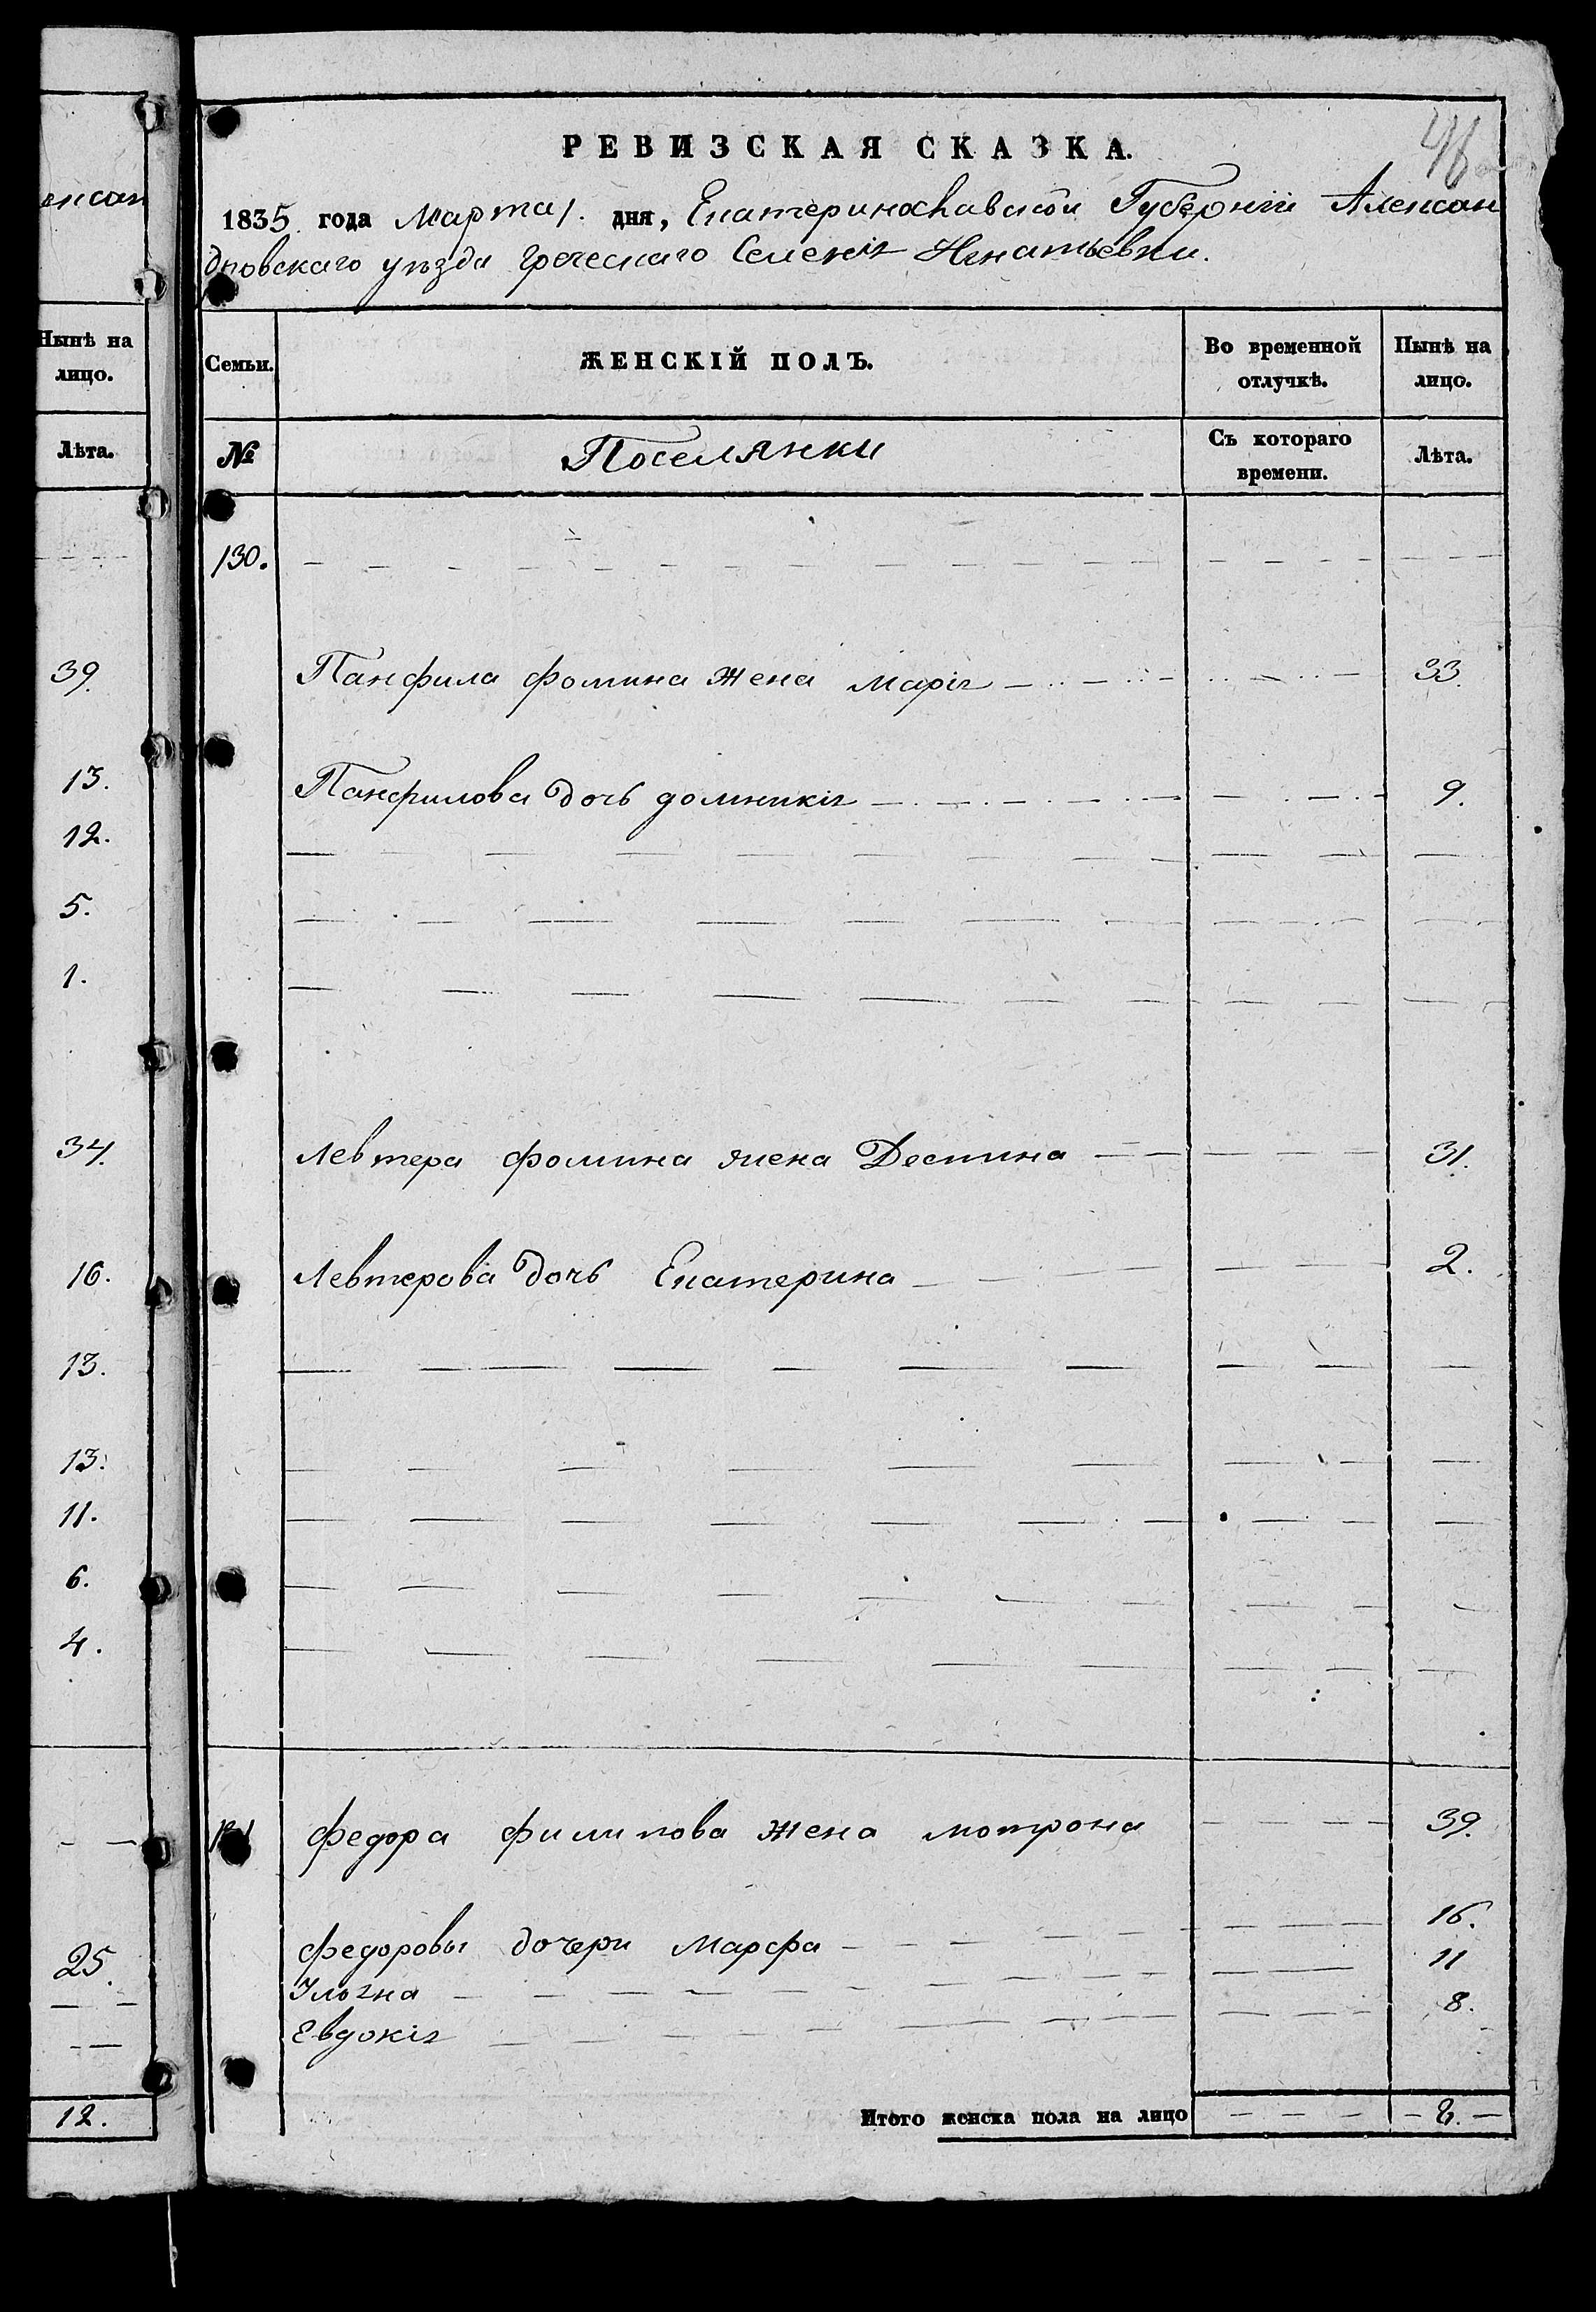 енсан
Нынѣ на
лицо.
Лѣта.
39.
13.
12.
5.
1.
34.
16.
13.
13.
11.
6.
4.
25.
12.
46
РЕВИЗСКАЯ СКАЗКА.
1835 года Марта 1. дня, Екатеринославской Губернiи Алексан
дровскаго уѣзда греческаго Селенія Игнатьевки.
Семьи. ЖЕНСКІЙ ПОЛЪ. Во временной отлучкѣ. Нынѣ на лицо.
№ Поселянки Съ котораго времени. Лѣта.
130.
Панфила фомина жена марія 33.
Панфилова дочь домникія 9.
Левтера фомина жена Деспина 31.
Левтерова дочь Екатерина 2.
131 федора филипова жена мотрона 39.
федоровы дочери Марфа 16.
Ульяна 11
Евдокія 8.
Итого женска пола на лицо 8.